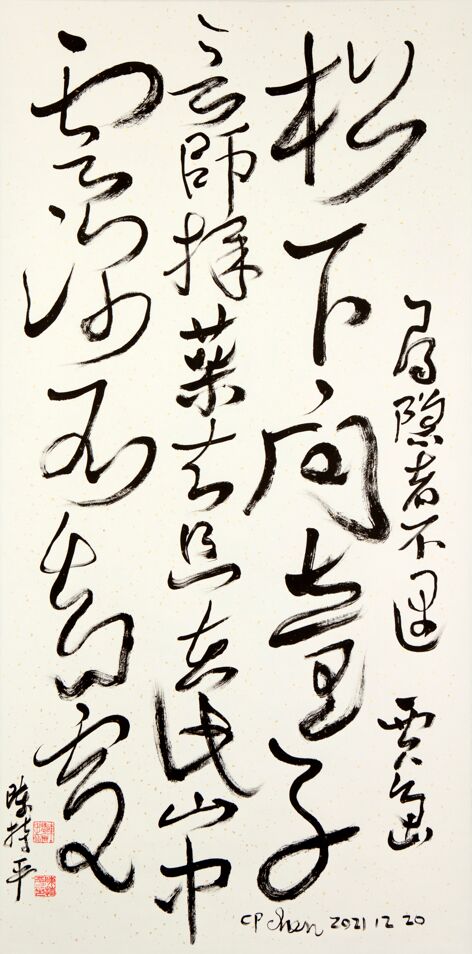 尋隱者不遇 賈島
松下問童子
言師採藥去只在此山中
雲深不知處
陳持平
CP Chen 2021 12 20